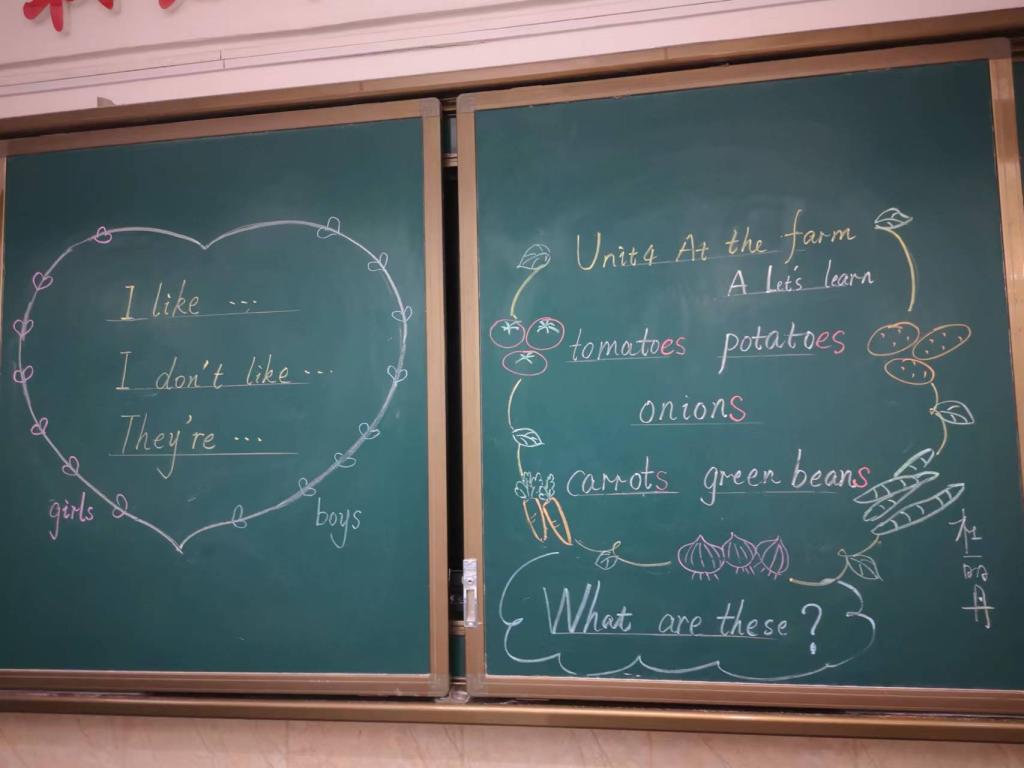 I like ...
I don't like ...
They're ...
girls
boys
Unit4 At the farm
A Let's learn
tomatoes potatoes
onions
carrots green beans
What are these?
杜丽丹